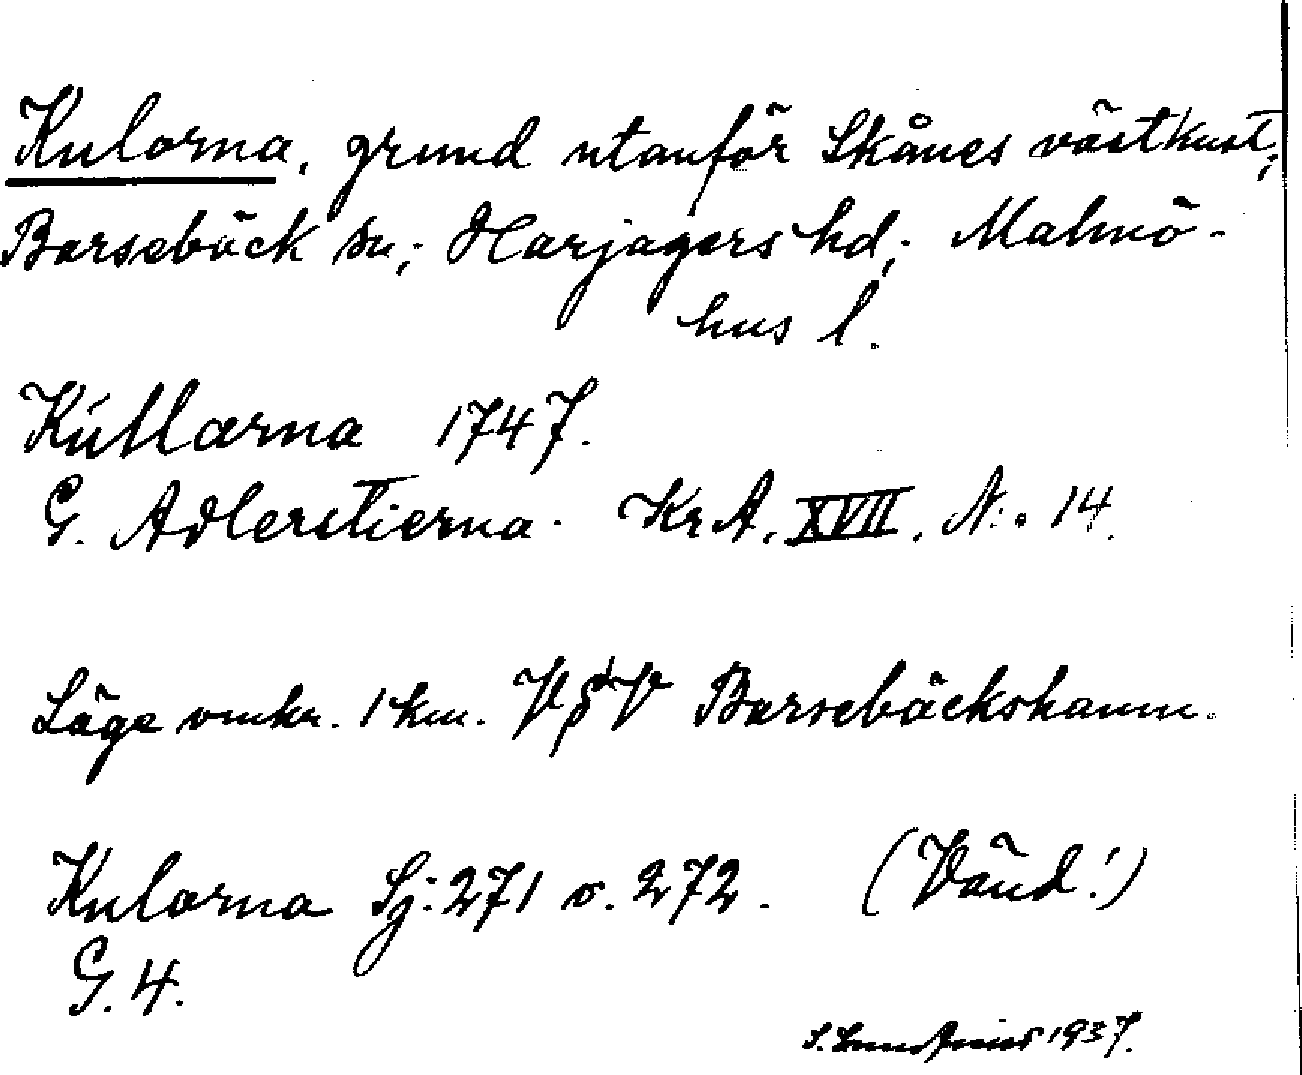 Kulorna, grund utanför Skånes västkust;
Barsebäck sn; Harjagers hd; Malmö-
hus l.
Kúllarna 1747.
G. Adlerstierna. Kr A. XVII. N:o 14.
Läge omkr. 1 km. VSV Barsebäckshamn.
Kulorna Sj: 271 o. 272. (Vänd!)
G. 4.
S. 1937.